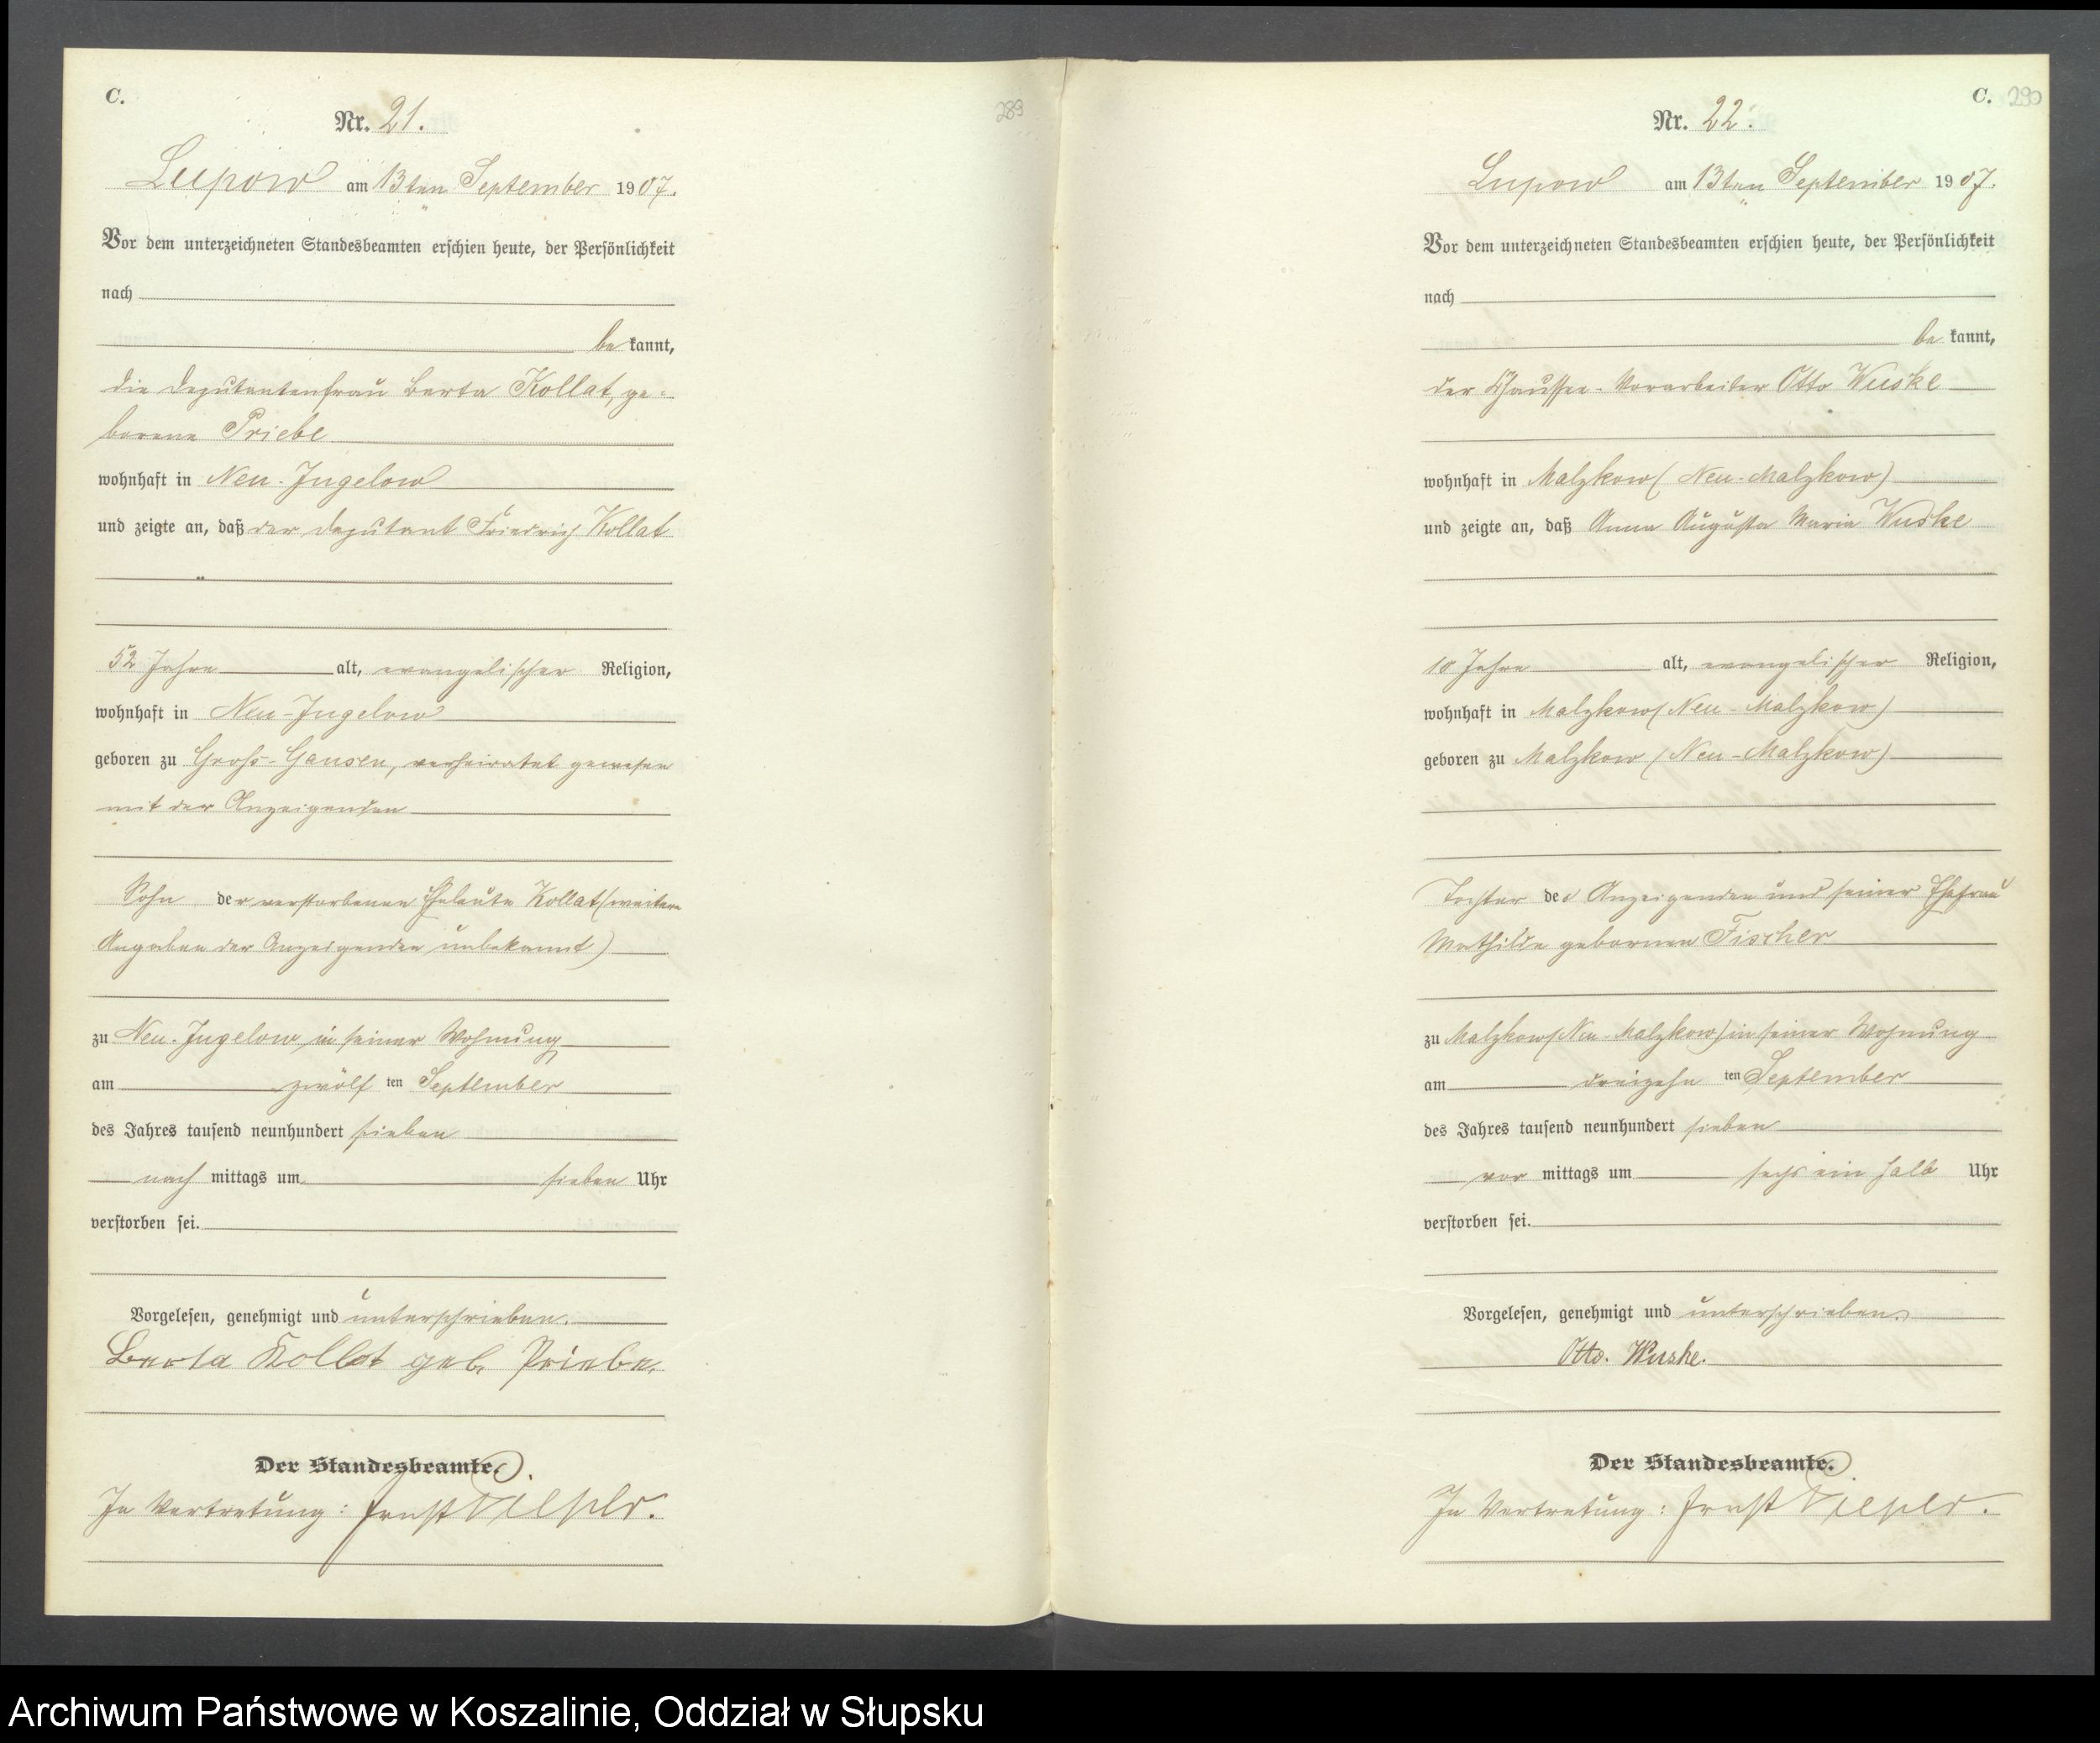 C.
Nr. 21.
289
Lupow am 13ten September 1907.
Vor dem unterzeichneten Standesbeamten erschien heute, der Persönlichkeit
nach
be kannt,
die Deputantenfrau Berta Kollat, ge-
borene Priebe
wohnhaft in Neu-Jugelow
und zeigte an, daß der Deputant Friedrich Kollat
52 Jahre alt, evangelischer Religion,
wohnhaft in Neu-Jugelow
geboren zu Groß-Gansen, verheiratet gewesen
mit der Anzeigenden
Sohn der verstorbenen Eheleute Kollat (weitere
Angaben der Anzeigenden unbekannt)
zu Neu-Jugelow in seiner Wohnung
am zwölf ten September
des Jahres tausend neunhundert sieben
nach mittags um sieben Uhr
verstorben sei.
Vorgelesen, genehmigt und unterschrieben.
Berta Kollat geb. Priebe.
Der Standesbeamte.
In Vertretung: Ernst
C. 290
Nr. 22.
Lupow am 13ten September 1907.
Vor dem unterzeichneten Standesbeamten erschien heute, der Persönlichkeit
nach
be kannt,
der Chaussee-Vorarbeiter Otto Wuske
wohnhaft in Malzkow (Neu-Malzkow)
und zeigte an, daß Anna Augusta Maria Wuske
10 Jahre alt, evangelischer Religion,
wohnhaft in Malzkow (Neu-Malzkow)
geboren zu Malzkow (Neu-Malzkow)
Tochter des Anzeigenden und seiner Ehefrau
Mathilde gebornen Fischer
zu Malzkow (Neu-Malzkow) in seiner Wohnung
am dreizehn ten September
des Jahres tausend neunhundert sieben
vor mittags um sechs ein halb Uhr
verstorben sei.
Vorgelesen, genehmigt und unterschrieben.
Otto. Wuske.
Der Standesbeamte.
In Vertretung: Ernst
Archiwum Państwowe w Koszalinie, Oddział w Słupsku